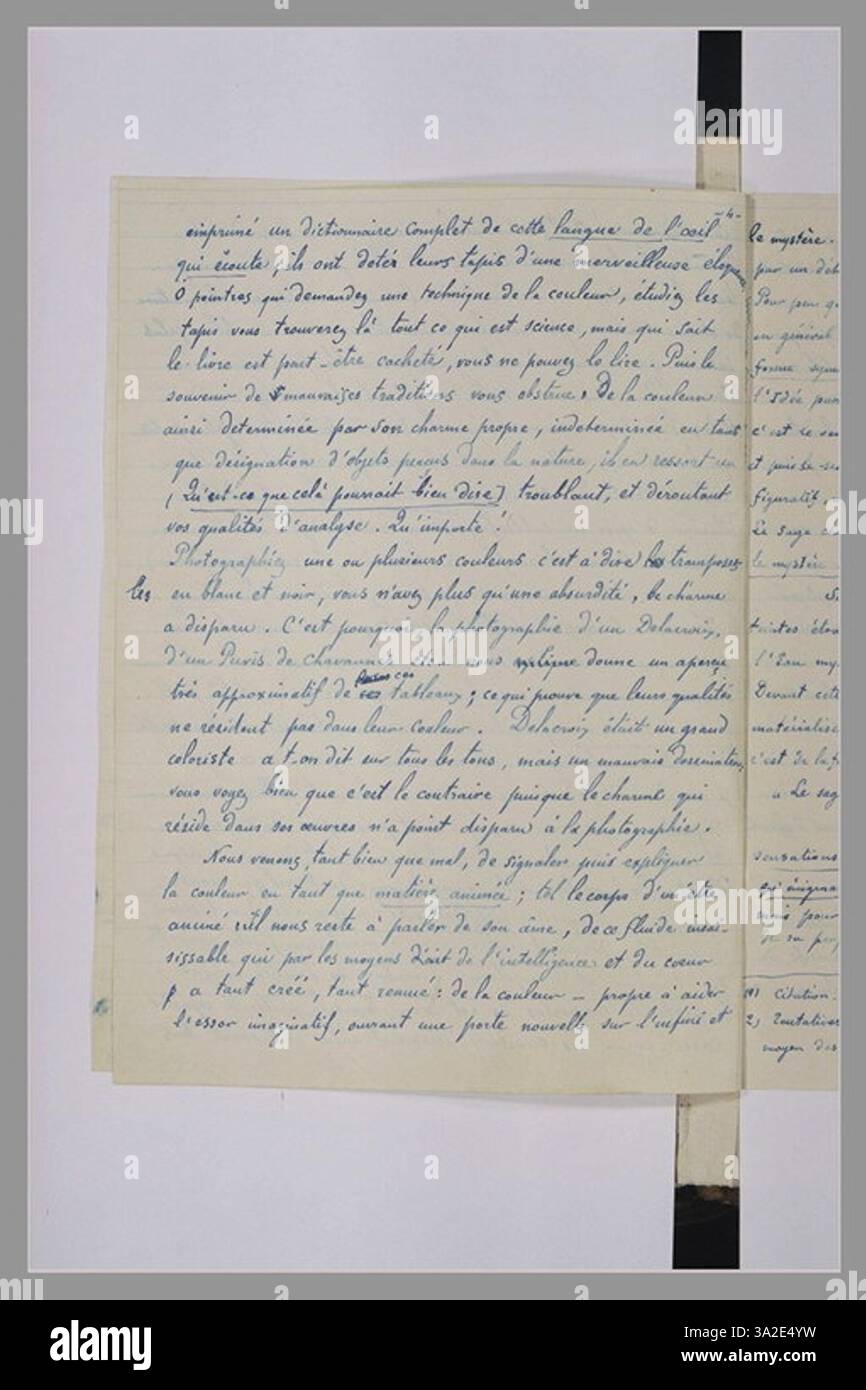 -4-
imprimé un dictionnaire complet de cette langue de l'œil
qui écoute, ils ont doté leurs tapis d'une merveilleuse éloquence
O peintres qui demandez une technique de la couleur, étudiez les
tapis vous trouverez là tout ce qui est science, mais qui sait
le livre est peut-être cacheté, vous ne pouvez le lire. Puis le
souvenir de mauvaises traditions vous obstrue. De la couleur
ainsi determinée par son charme propre, indeterminée en tant
que désignation d'objets perçus dans la nature, il en ressort un
(Qu'est-ce que celà pourrait bien dire) troublant, et déroutant
vos qualités d'analyse. Qu'importe!
Photographiez une ou plusieurs couleurs c'est à dire transposez
les en blanc et noir, vous n'avez plus qu'une absurdité, le charme
a disparu. C'est pourquoi la photographie d'un Delacroix,
d'un Puvis de chavannes nous donne un aperçu
très approximatif de ces tableaux; ce qui prouve que leurs qualités
ne résident pas dans leur couleur. Delacroix était un grand
coloriste a t-on dit sur tous les tons, mais un mauvais dessinateur,
vous voyez bien que c'est le contraire puisque le charme qui
réside dans ses œuvres n'a point disparu à la photographie.
Nous venons, tant bien que mal, de signaler puis expliquer
la couleur en tant que matière animée; tel le corps d'un être
animé il nous reste à parler de son âme, de ce fluide insai-
sissable qui par les moyens de l'intelligence et du coeur
a tant créé, tant remué: de la couleur — propre à aider
l'essor imaginatif, ouvrant une porte nouvelle sur l'infini et
le mystère.
par un
Pour peu
en général
forme
l'Idée
c'est le
et puis le
figuratif,
Le sage
le mystère
teintes
l'Eau
Devant cette
c'est de la
" Le
sensations
mais pour
(1) Citation.
2) Tentatives
moyen des
alamy
Image ID: 3A2E4YW
www.alamy.com